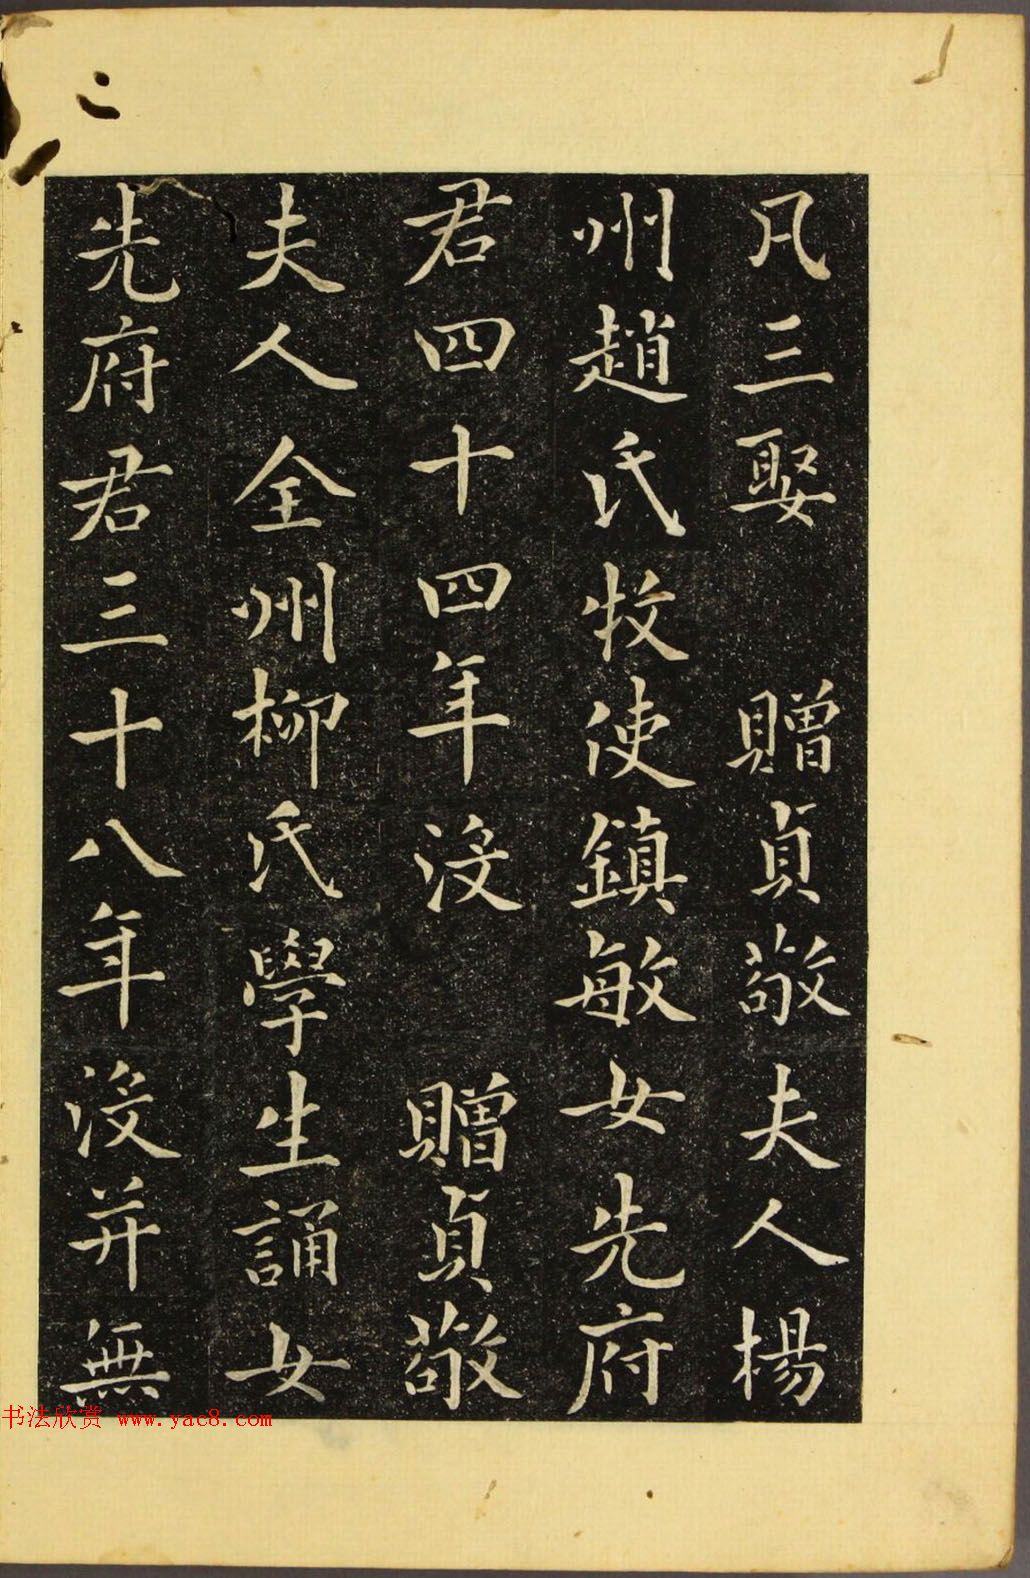 凡三娶　贈貞敬夫人楊
州趙氏牧使鎮敏女先府
君四十四年沒　贈貞敬
夫人全州柳氏學生誦女
先府君三十八年沒并無
书法欣赏 www.yac8.com